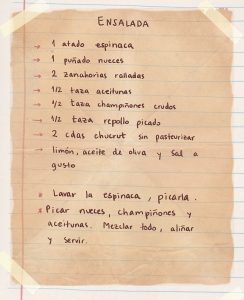 ENSALADA
→ 1 atado espinaca
→ 1 puñado nueces
→ 2 zanahorias ralladas
→ 1/2 taza aceitunas
→ 1/2 taza champiñones crudos
→ 1/2 taza repollo picado
→ 2 cdas chucrut sin pasteurizar
→ limón, aceite de oliva y sal a
gusto
* Lavar la espinaca, picarla.
* Picar nueces, champiñones y
aceitunas. Mezclar todo, aliñar
y servir.